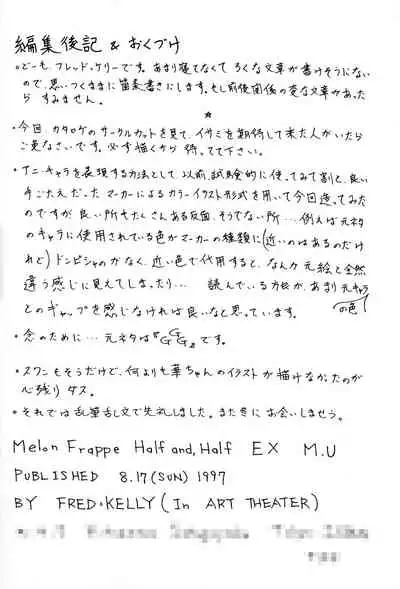 編集後記 & おくづけ
・どーも、フレッド・ケリーです。あまり寝てなくてろくな文章が書けそうにない
ので、思いつくままに箇条書きにします。もし前後関係の変な文章があった
ら すみません。
★
・今回、カタログのサークルカットを見て、イサミを期待して来た人がいたら
ごめんなさいです。必ず描くから 待ってて下さい。
・アニ・キャラを表現する方法として、以前、試験的に使ってみて割と、良い
手ごたえだったマーカーによるカラーイラスト形式を用いて今回迄ってみた
のですが良い所もたくさんある反面、そうでない所…例えば元ネタ
のキャラに使用されている色がマーカーの種類に(近いのはあるのだけ
れど)ドンピシャのがなく、近い色で代用すると、なんか元絵と全然
違う感じに見えてしまったり… 読んでいる方々が、あまり元キャラ
の色
とのギャップを感じなければ良いなと思っています。
・念のために… 元ネタは『GGG』です。
・スワンもそうだけど、何よりも華ちゃんのイラストが描けなかったのが
心残りダス。
・それでは乱筆乱文で失礼しました。また冬にお会いしませう。
Melon Frappe Half and, Half EX M.U
PUBLISHED 8.17(SUN) 1997
BY FRED・KELLY (In ART THEATER)